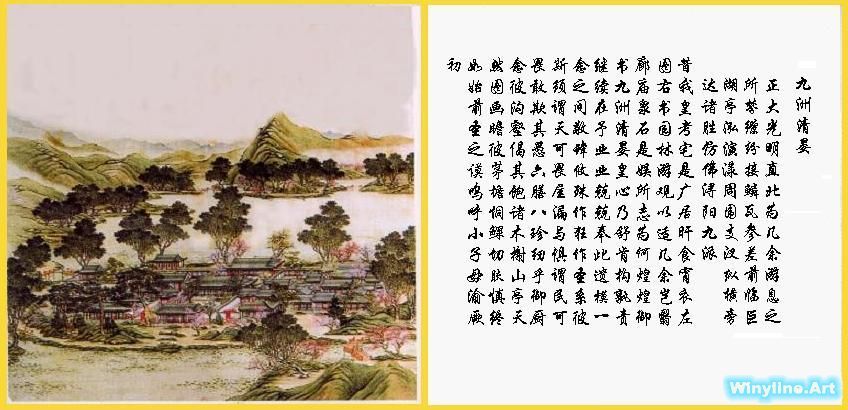 九洲清晏
正大光明直北为几余游息之
所棼缭纷接鳞瓦参差前临巨
湖亭泓演漾周围支汊纵横旁
达诸胜仿佛浔阳九派
昔我皇考宅是广居旰食宵衣左
图右书园林游观以适几余岂繄
廊庙泉石是娱所志为何煌煌御
书九洲清晏皇心乃舒肯构孰责
继续在予业业兢兢奉此遗模一
念之间敬肆攸殊作狂作圣系彼
斯须谓天可畏屋漏与俱谓民可
畏敢欺其愚六膳八珍纫乎御厨
念彼沟壑偈其饱诸木榭山亭天
然图画瞻彼茅檐恫鳏切肤慎终
如始前圣之谟呜呼小子毋渝厥
初
Winyline.Art